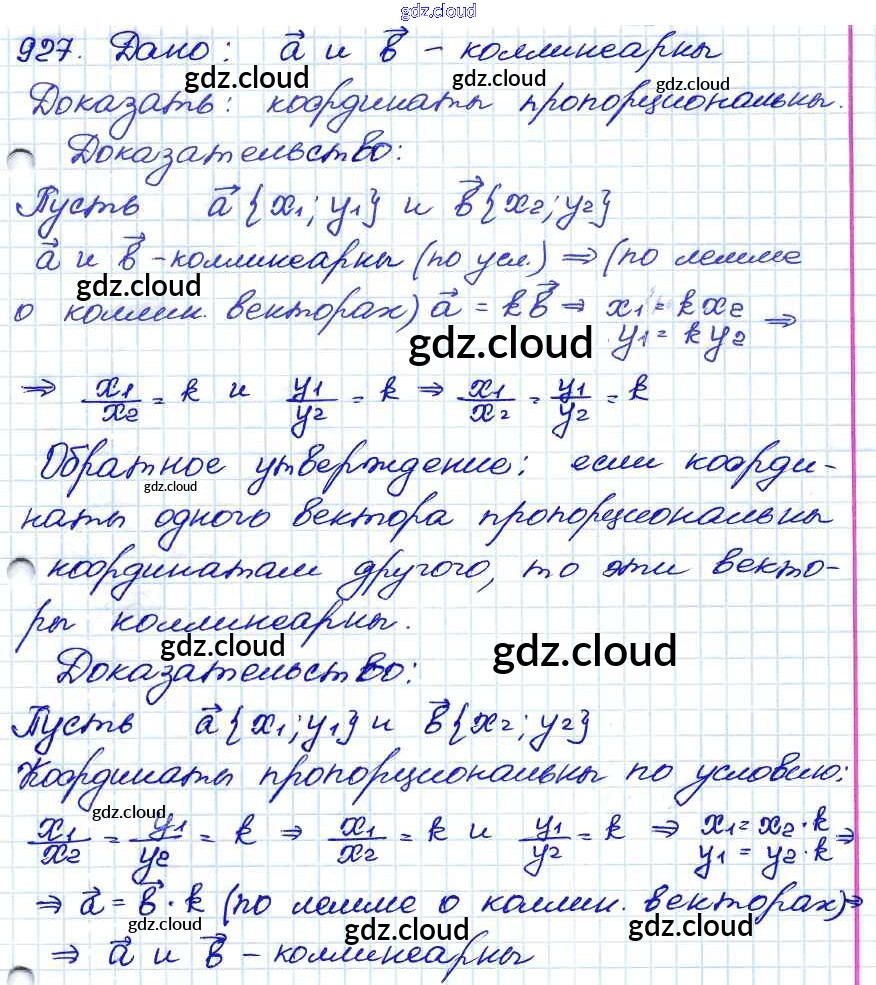 gdz.cloud
927. Дано: a⃗ и b⃗ - коллинеарны
gdz.cloud gdz.cloud gdz.cloud
Доказать: координаты пропорциональны.
Доказательство:
Пусть a⃗ {x₁; y₁} и b⃗ {x₂; y₂}
a⃗ и b⃗ - коллинеарны (по усл.) ⇒ (по лемме
gdz.cloud
о коллин. векторах) a⃗ = k b⃗ ⇒ x₁ = k x₂
y₁ = k y₂ ⇒
gdz.cloud
⇒ x₁/x₂ = k и y₁/y₂ = k ⇒ x₁/x₂ = y₁/y₂ = k
Обратное утверждение: если коорди-
gdz.cloud
наты одного вектора пропорциональны
координатам другого, то эти векто-
ры коллинеарны.
gdz.cloud gdz.cloud
Доказательство:
Пусть a⃗ {x₁; y₁} и b⃗ {x₂; y₂}
Координаты пропорциональны по условию:
gdz.cloud
x₁/x₂ = y₁/y₂ = k ⇒ x₁/x₂ = k и y₁/y₂ = k ⇒ x₁ = x₂ · k
y₁ = y₂ · k ⇒
⇒ a⃗ = b⃗ · k (по лемме о коллин. векторах) ⇒
gdz.cloud gdz.cloud gdz.cloud
⇒ a⃗ и b⃗ - коллинеарны